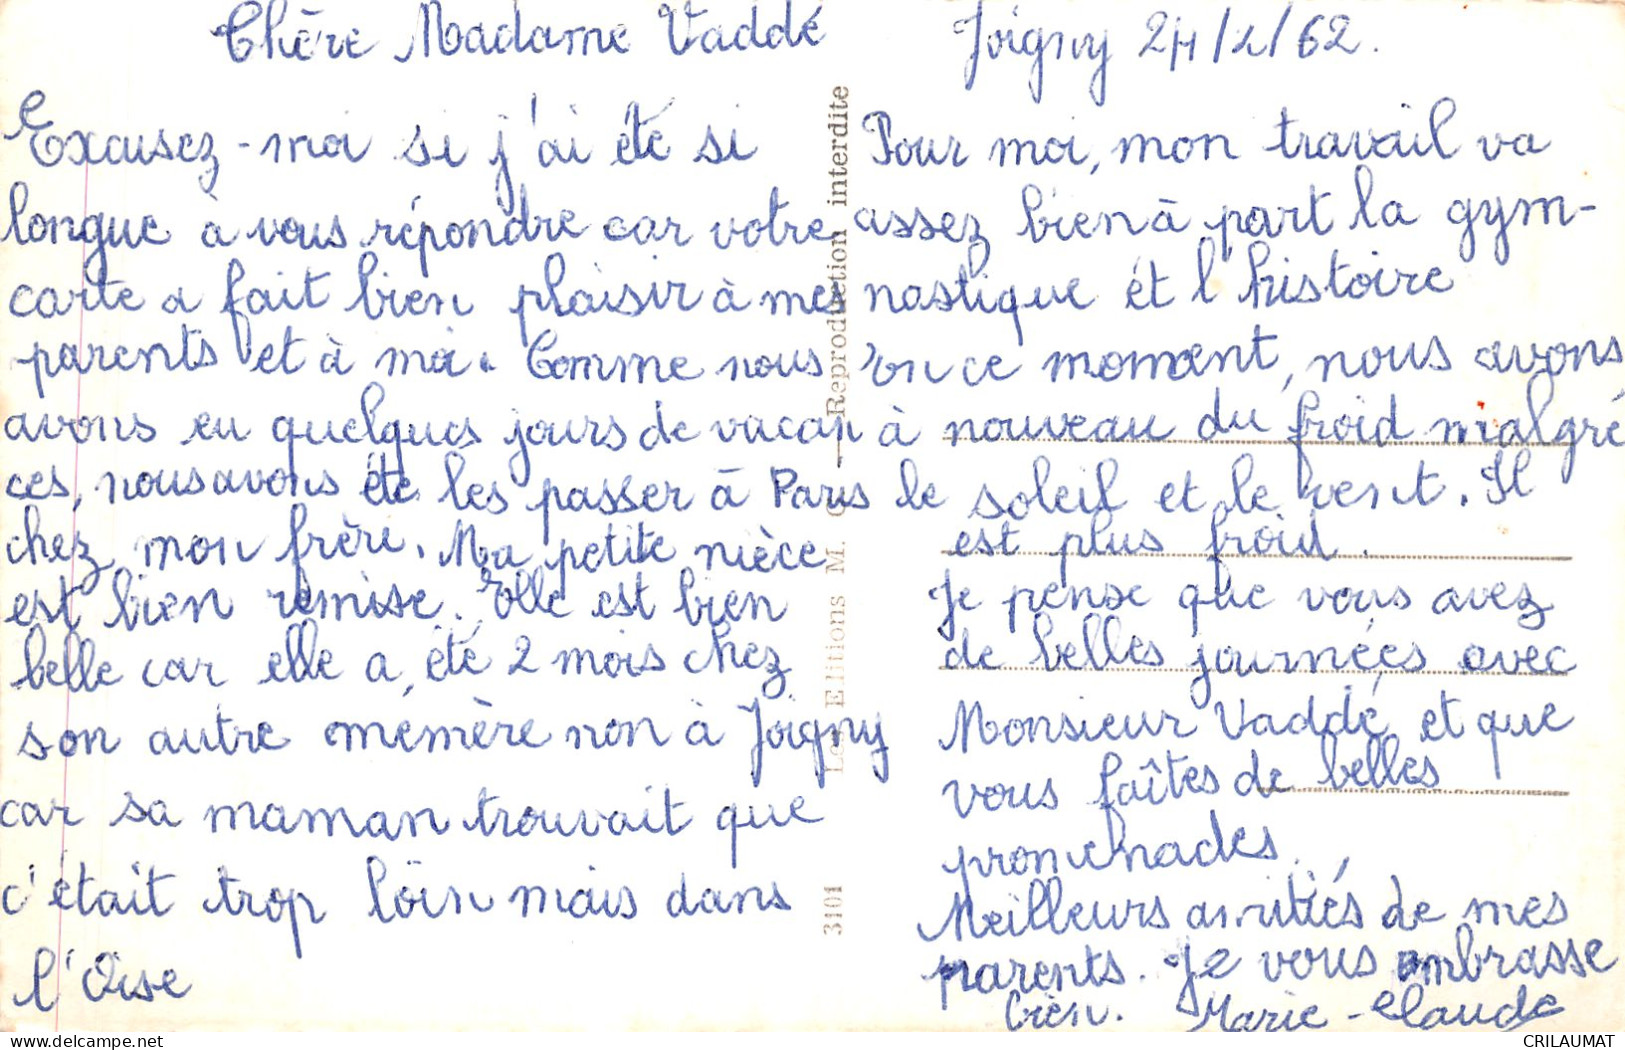 Chère Madame Vaddé
Excusez-moi si j'ai été si
longue à vous répondre car votre
carte a fait bien plaisir à mes
parents et à moi. Comme nous
avons eu quelques jours de vacan
ces, nous avons été les passer à Paris
chez mon frère. Ma petite nièce
est bien remise. Elle est bien
belle car elle a été 2 mois chez
son autre memère non à Joigny
car sa maman trouvait que
c'était trop loin mais dans
l'Oise
Joigny 24/2/62.
Pour moi, mon travail va
assez bien à part la gym-
nastique et l'histoire
En ce moment, nous avons
à nouveau du froid malgré
le soleil et le vent. Il
est plus froid.
Je pense que vous avez
de belles journées avec
Monsieur Vaddé et que
vous faîtes de belles
promenades.
Meilleurs amitiés de mes
parents. Je vous embrasse
bien. Marie-Claude
3101 Les Editions M. C. — Reproduction interdite
CRILAUMAT